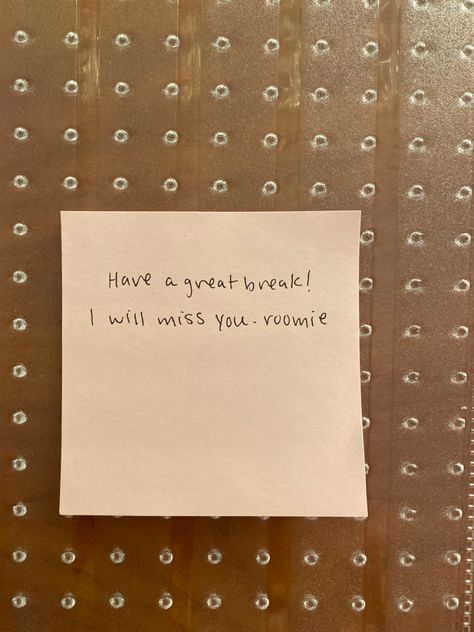 Have a great break!
I will miss you. roomie